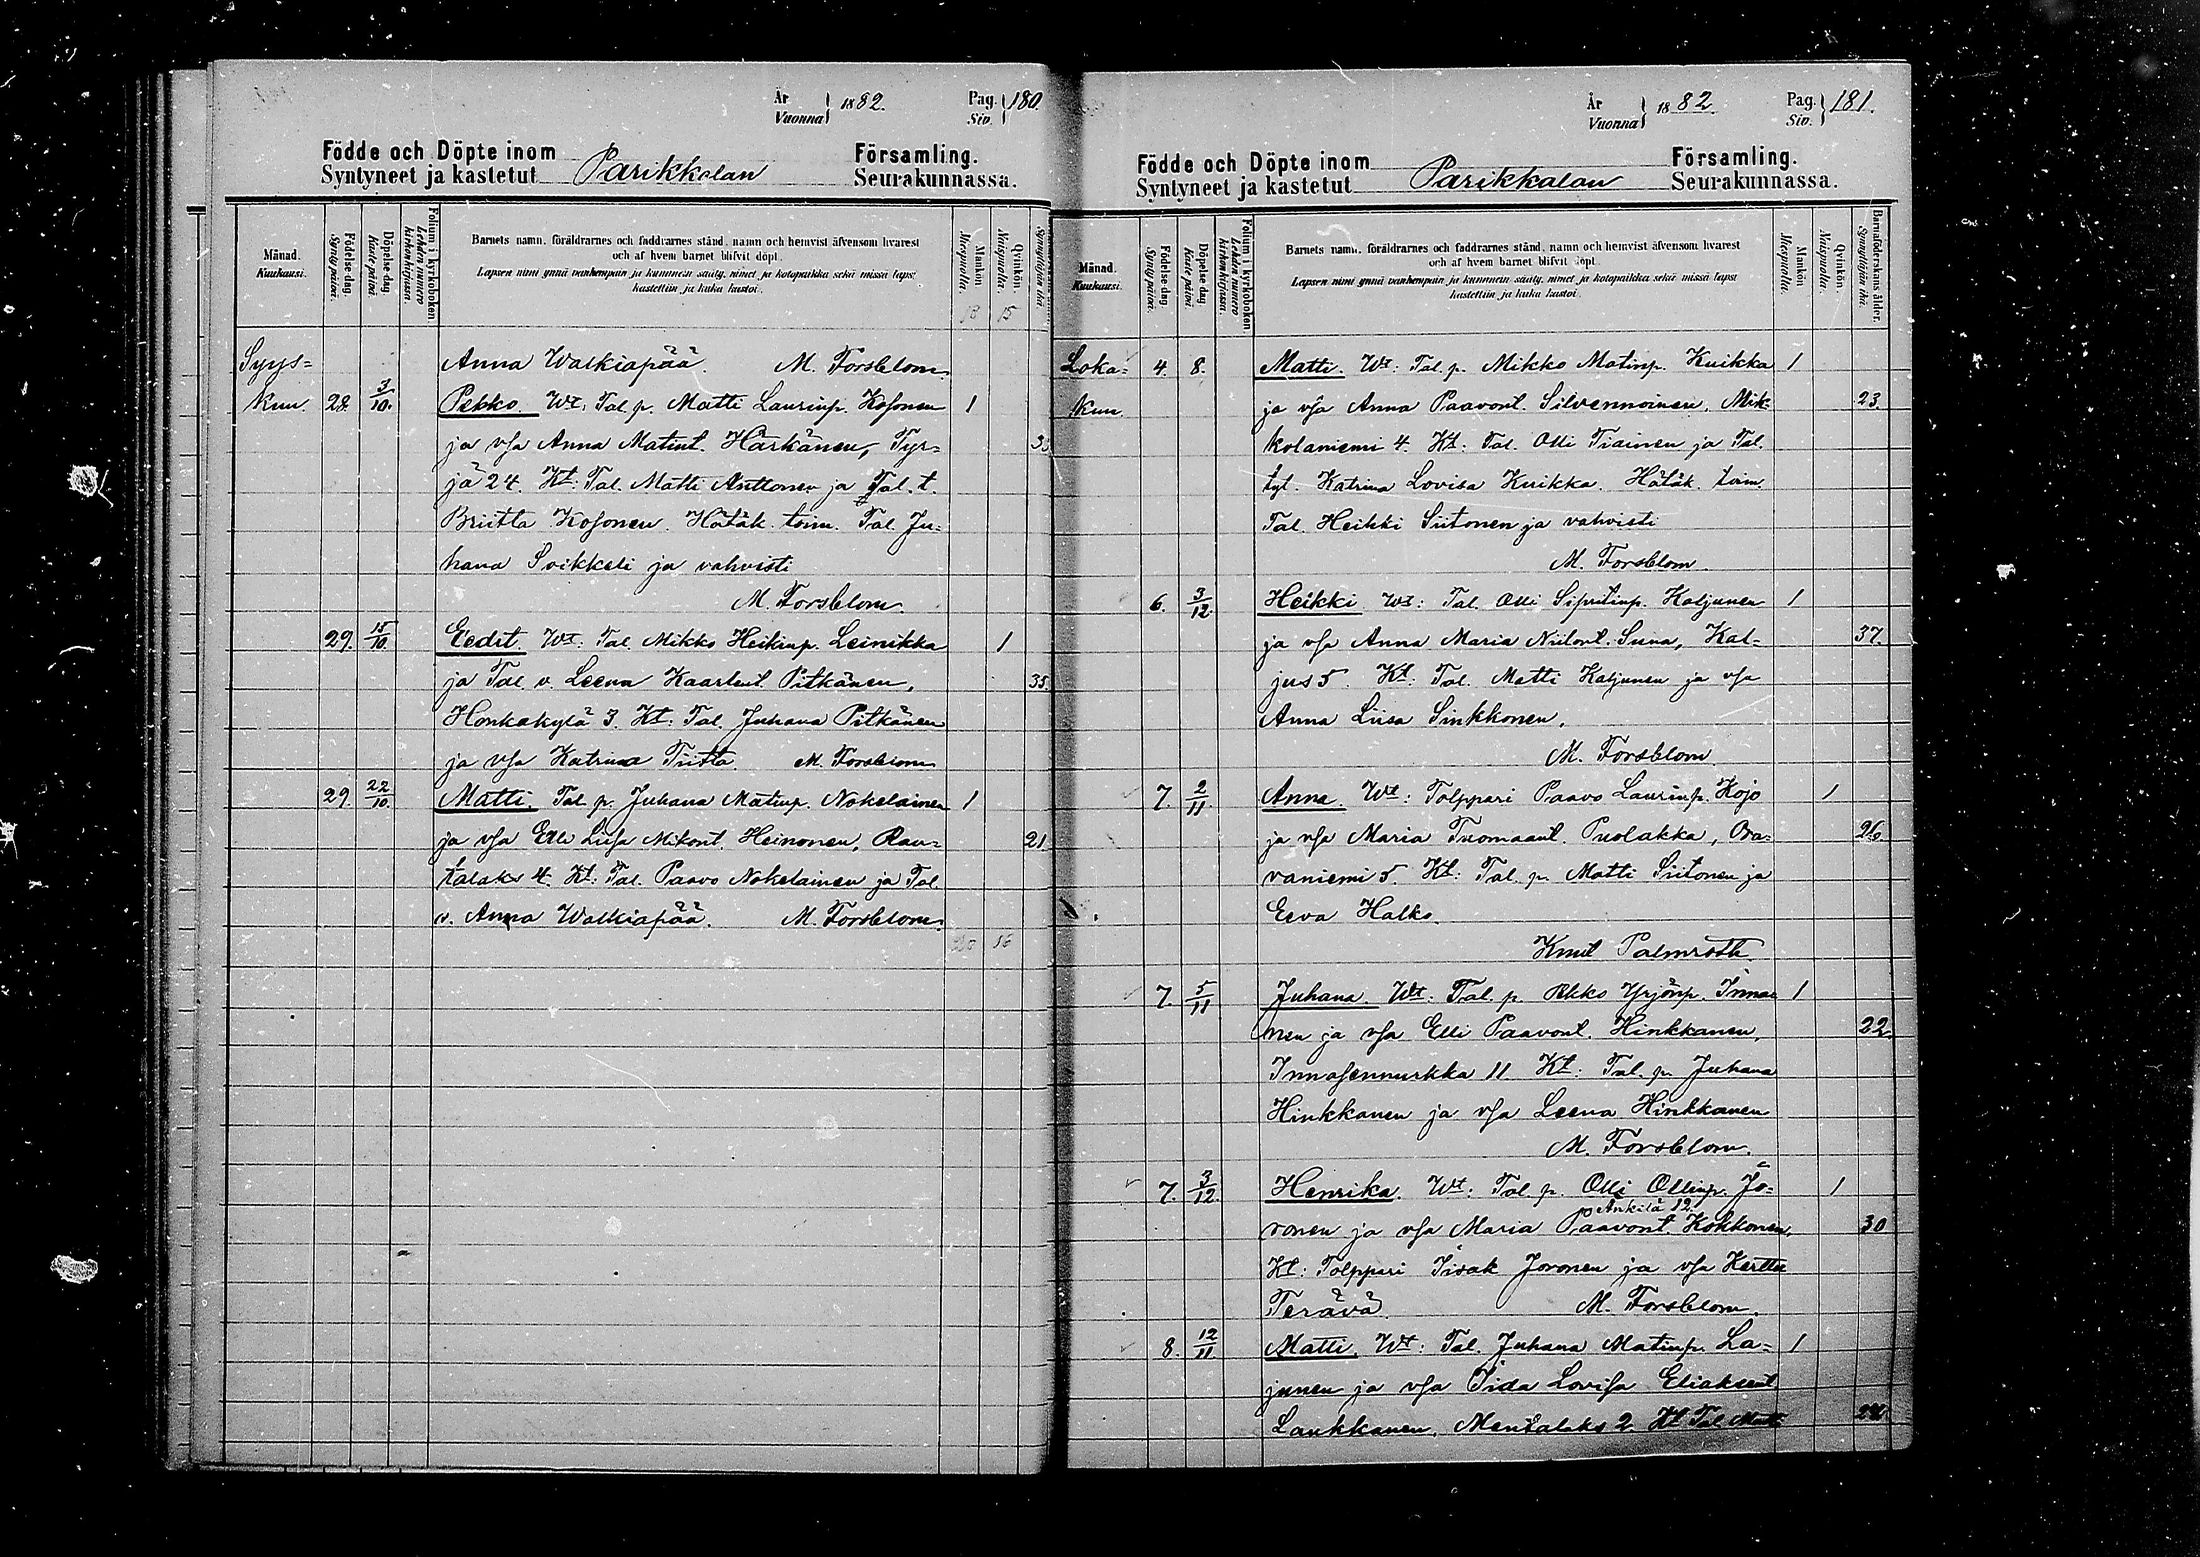 År
Vuonna 1882. Pag. Siv. 180.
Födde och Döpte inom Församling.
Syntyneet ja kastetut Parikkalan Seurakunnassa.
Månad. Kuukausi.
Födelse dag. Syntymäpäivä.
Döpelse dag. Kaste päivä.
Folium i kyrkoboken. Lehden numero kirkonkirjassa.
Barnets namn, föräldrarnes och faddrarnes stånd, namn och hemvist äfvensom hvarest
och af hvem barnet blifvit döpt.
Lapsen nimi ynnä vanhempain ja kummein sääty, nimet ja kotopaikka sekä missä lapsi
kastettiin ja kuka kastoi.
Mankön Miespuolia.
Qvinkön Naispuolia.
18 15
Syys= Anna Walkiapää. M. Forsblom.
kuu. 28. 3/10. Pekko Wt: Tal. p. Matti Laurinp. Kosonen 1
ja vsa Anna Matint. Härkänen, Tyr= 33
jä 24. Kt: Tal. Matti Anttonen ja Tal. t.
Briitta Kosonen. Hätäk. toim. Tal. Ju=
hana Soikkeli ja vahvisti
M. Forsblom.
29. 15/10. Eedit. Wt: Tal. Mikko Heikinp. Leinikka 1
ja Tal. v. Leena Kaarlent. Pitkänen, 35.
Honkakylä 3. Kt: Tal. Juhana Pitkänen
ja vsa Katrina Tiitta. M. Forsblom
29. 22/10. Matti. Tal. p. Juhana Matinp. Nokelainen 1
ja vsa Elli Liisa Mikont. Heinonen, Rau= 21.
talaks 4. Kt: Tal. Paavo Nokelainen ja Tal.
v. Anna Walkiapää. M. Forsblom.
20 16
År
Vuonna 1882. Pag. Siv. 181.
Födde och Döpte inom Församling.
Syntyneet ja kastetut Parikkalan Seurakunnassa.
Månad. Kuukausi.
Födelse dag. Syntymäpäivä.
Döpelse dag. Kaste päivä.
Folium i kyrkoboken. Lehden numero kirkonkirjassa.
Barnets namn, föräldrarnes och faddrarnes stånd, namn och hemvist äfvensom hvarest
och af hvem barnet blifvit döpt.
Lapsen nimi ynnä vanhempain ja kummein sääty, nimet ja kotopaikka sekä missä lapsi
kastettiin ja kuka kastoi.
Mankön Miespuolia.
Qvinkön Naispuolia.
Barnaföderskans ålder. Synnyttäjän ikä.
Loka= 4. 8. Matti. Wt: Tal. p. Mikko Matinp. Kuikka 1
kuu. ja vsa Anna Paavont. Silvennoinen, Mik= 23.
kolaniemi 4. Kt: Tal. Olli Tiainen ja Tal.
tyt. Katrina Lovisa Kuikka. Hätäk. toim.
Tal. Heikki Siitonen ja vahvisti
M. Forsblom.
6. 3/12. Heikki Wt: Tal. Olli Sipritinp. Kaljunen 1
ja vsa Anna Maria Niilont. Suna, Kal= 37.
jus 5. Kt: Tal. Matti Kaljunen ja vsa
Anna Liisa Sinkkonen.
M. Forsblom
7. 2/11. Anna. Wt: Tolppari Paavo Laurinp. Kojo 1
ja vsa Maria Tuomaant. Puolakka, Ora= 26.
vaniemi 5. Kt: Tal. p. Matti Siitonen ja
Eeva Halko.
Knut Palmroth.
7. 5/11 Juhana Wt: Tal. p. Pekko Yrjönp. Inna= 1
nen ja vsa Elli Paavont. Hinkkanen, 22.
Innasennurkka 11. Kt: Tal. p. Juhana
Hinkkanen ja vsa Leena Hinkkanen
M. Forsblom.
7. 3/12. Henrika. Wt: Tal. p. Olli Ollinp. Jo= 1
Ankilä 12.
ronen ja vsa Maria Paavont. Kokkonen, 30
Kt: Tolppari Iisak Joronen ja vsa Kerttu
Terävä. M. Forsblom.
8. 12/11. Matti. Wt: Tal. Juhana Matinp. La= 1
junen ja vsa Iida Lovisa Eliaksent.
Laukkanen, Mentalaks 2. Kt Tal. Mat= 24